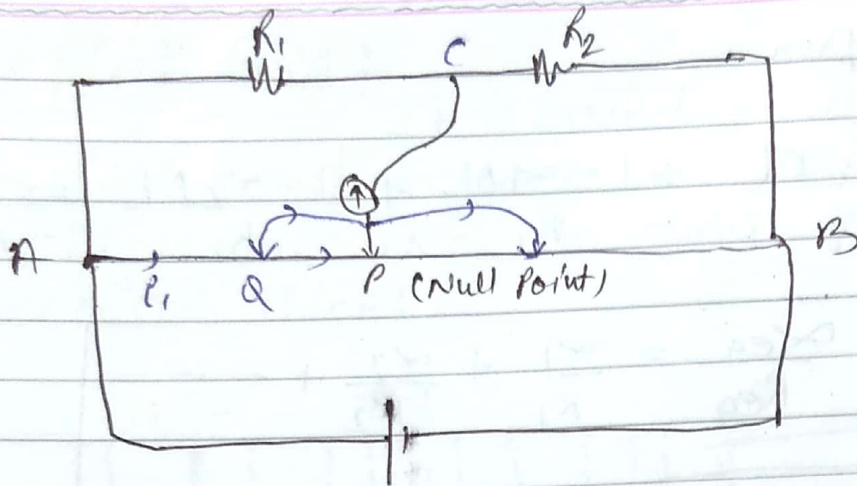 R1 C R2
A B
P1 Q P (Null Point)